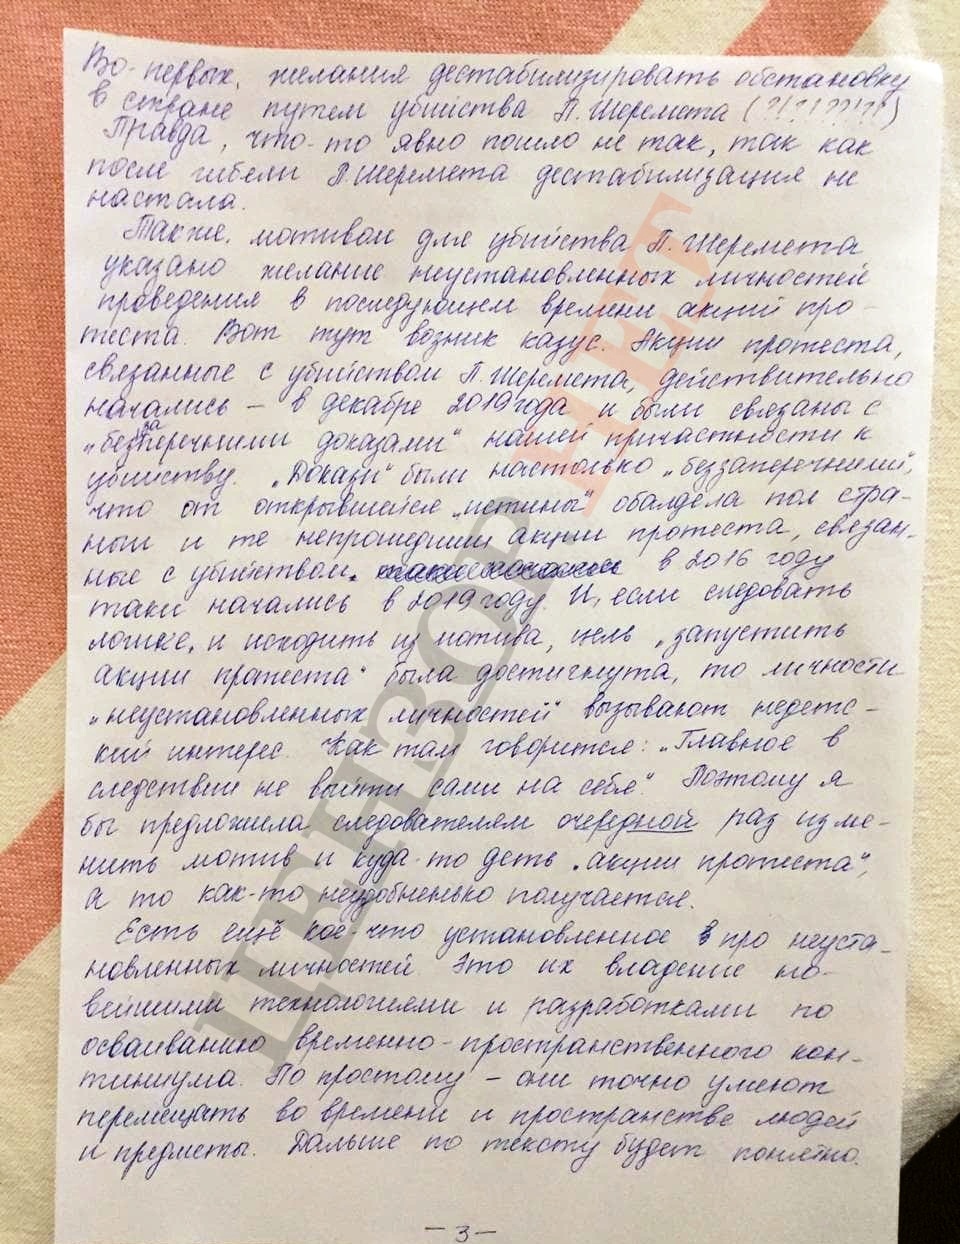 Во-первых, желания дестабилизировать обстановку
в стране путем убийства П. Шеремета (?!?!??!?!)
Правда, что-то явно пошло не так, так как
после гибели П. Шеремета дестабилизация не
настала.
Также, мотивом для убийства П. Шеремета
указано желание неустановленных личностей
проведения в последующем времени акций про-
теста. Вот тут возник казус. Акции протеста,
связанные с убийством П. Шеремета, действительно
начались – в декабре 2019 года и были связаны с
„беззаперечними доказами" нашей причастности к
убийству. „Докази" были настолько „беззаперечними",
что от открывшейся „истины" обалдела пол стра-
ны и те непрошедшие акции протеста, связан-
ные с убийством, в 2016 году
таки начались в 2019 году. И, если следовать
логике, и исходить из мотива, цель „запустить
акции протеста" была достигнута, то личности
„неустановленных личностей" вызывают недетс-
кий интерес. Как там говорится: „Главное в
следствии не выйти сами на себя". Поэтому я
бы предложила следователям очередной раз изме-
нить мотив и куда-то деть „акции протеста",
а то как-то неудобненько получается.
Есть ещё кое-что установленное про неуста-
новленных личностей. Это их владение но-
вейшими технологиями и разработками по
осваиванию временно-пространственного кон-
тиниума. По простому – они точно умеют
перемещать во времени и пространстве людей
и предметы. Дальше по тексту будет понятно.
– 3 –
ЦЕНЗОР НЕТ